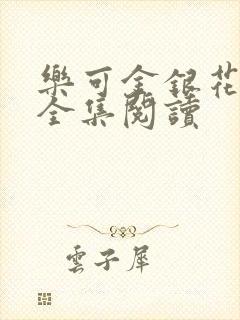 樂可金銀花
全集閱讀
雲子犀